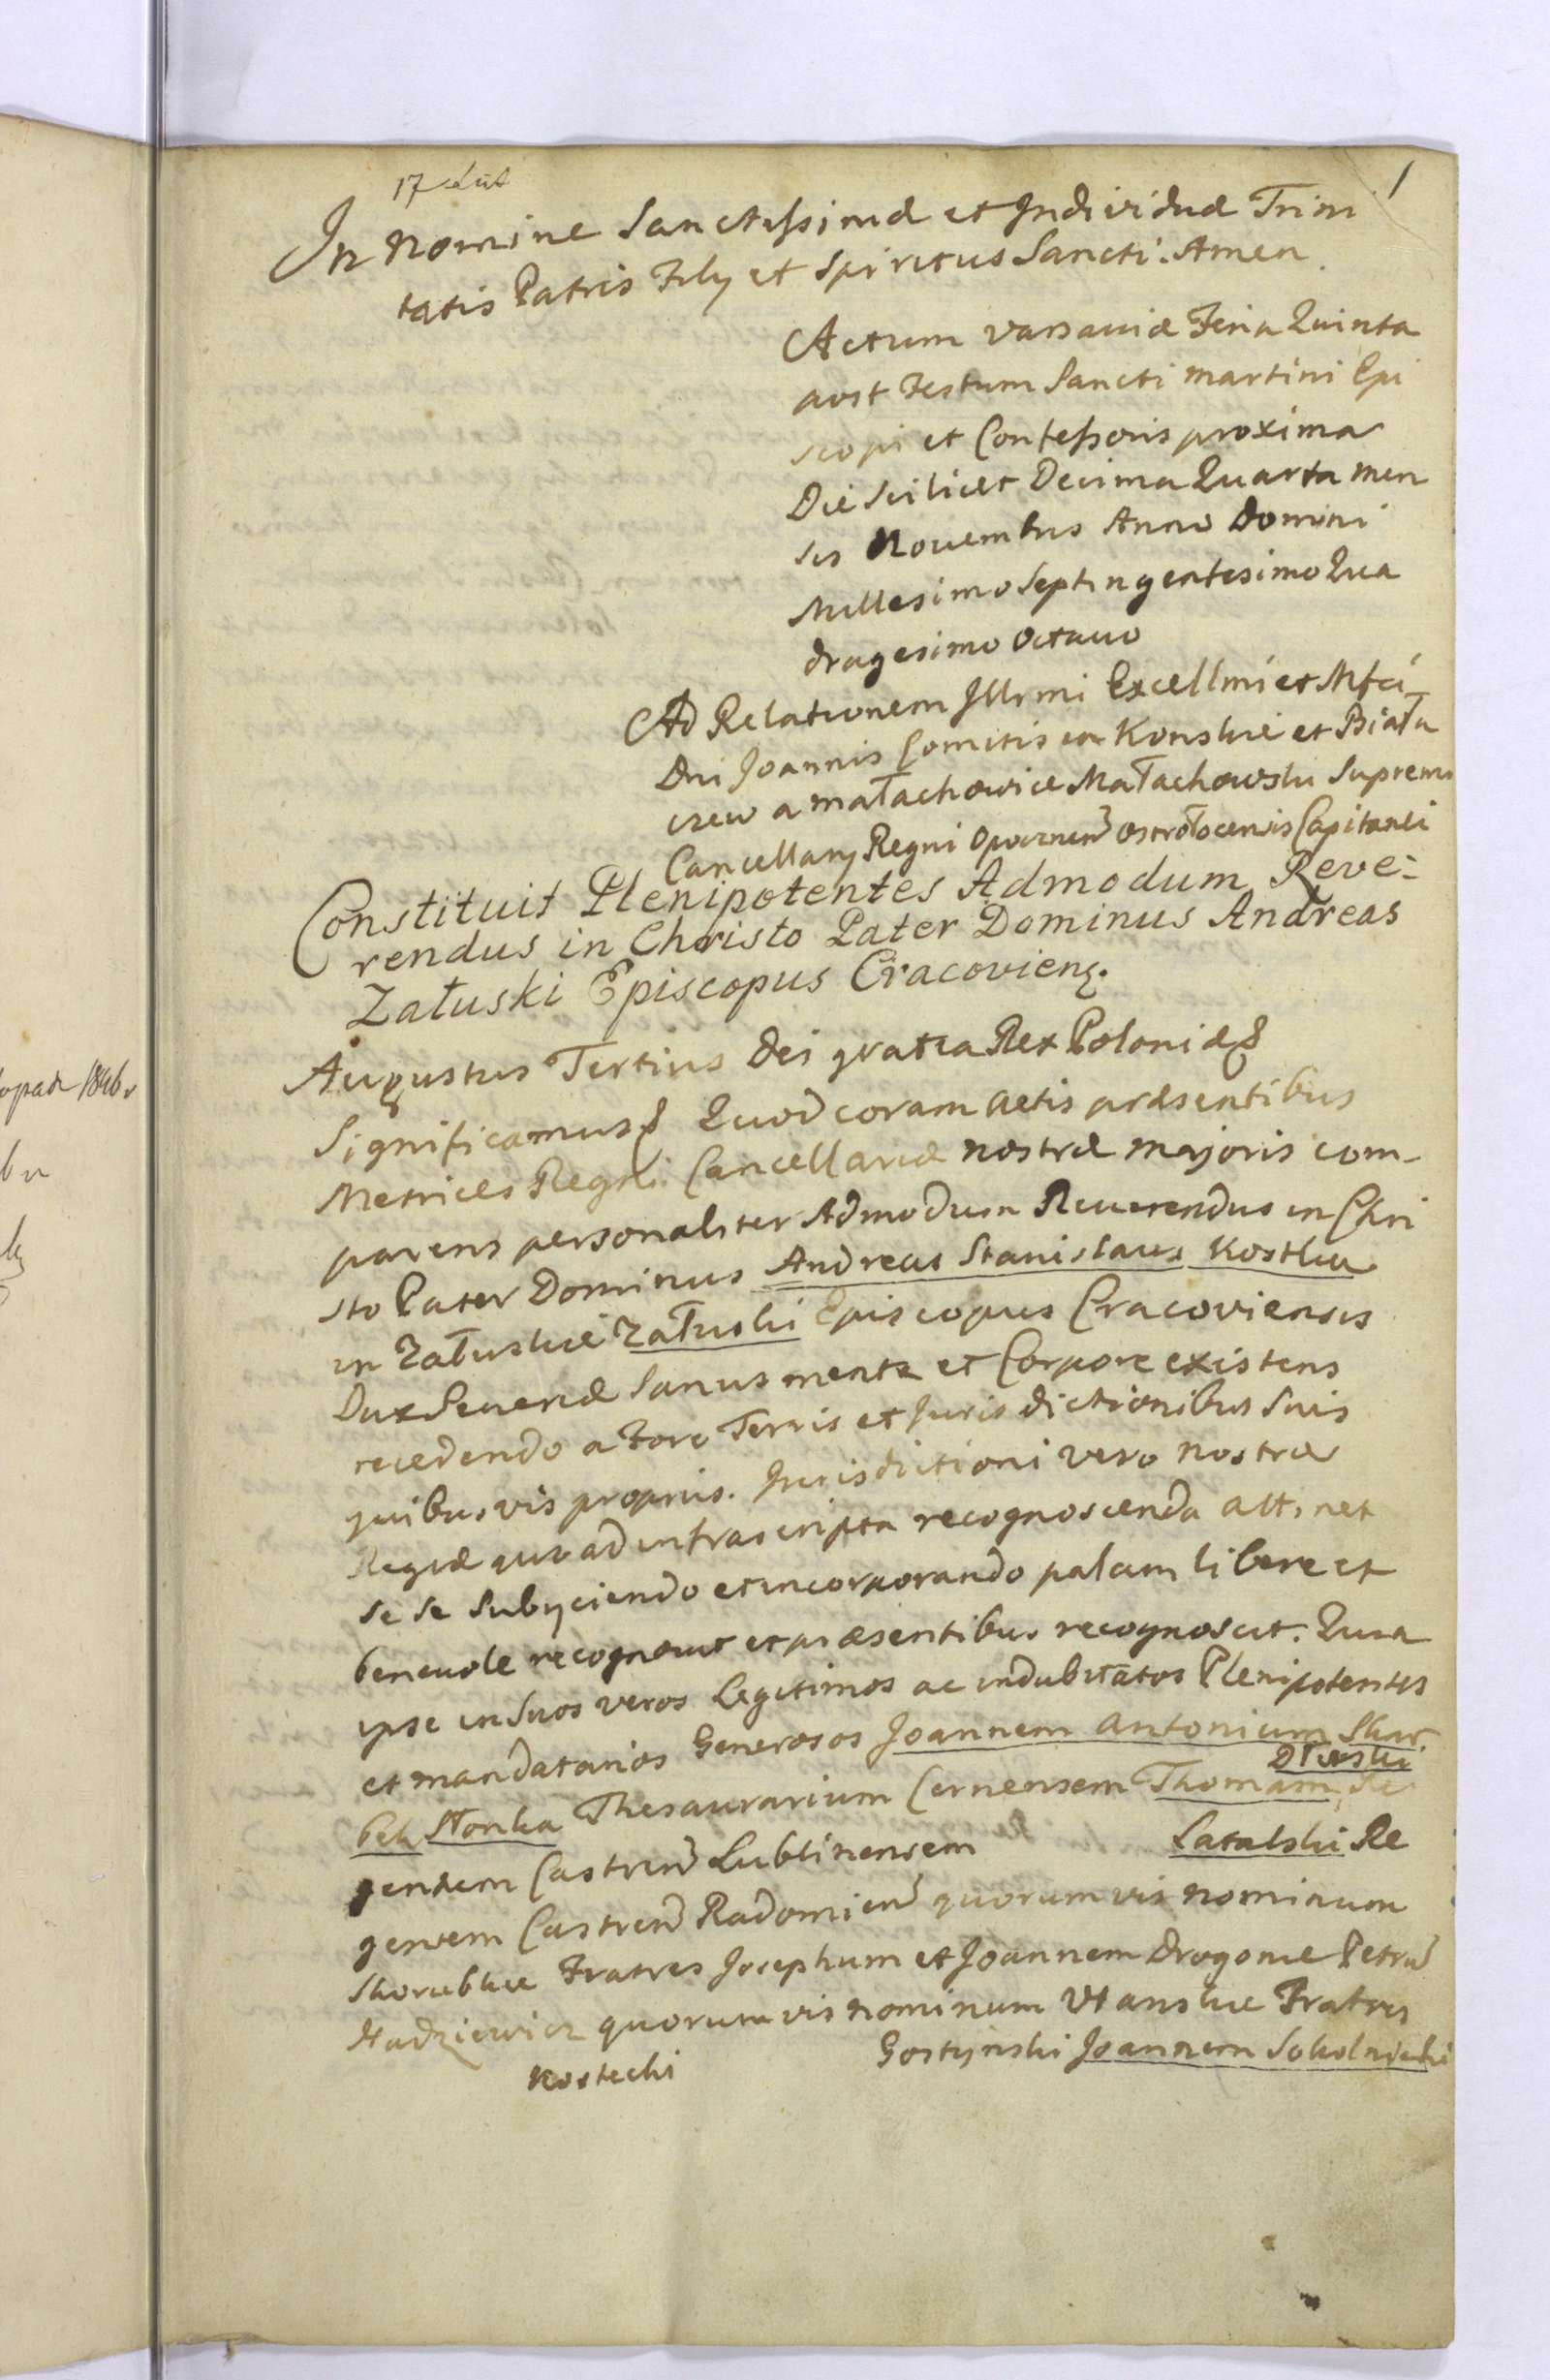 1
17
In Nomine Sanctissimæ et Individuæ Trini
tatis Patris Filij et Spiritus Sancti. Amen.
Actum Varsaviæ Feria Quinta
post Festum Sancti Martini Epi
scopi et Confessoris proxima
Die Scilicet Decima Quarta Men
sis Novembris Anno Domini
Millesimo Septingentesimo Qua
dragesimo Octavo
Ad Relationem Illrmi Excellmi et Mfci
Dni Joannis Comitis in Konskie et Biała
czew a Małachowice Małachowski Supremi
Cancellarij Regni Opocznen Ostrołocensis Capitanei
Constituit Plenipotentes Admodum Reve-
rendus in Christo Pater Dominus Andreas
Załuski Episcopus Cracovien.
Augustus Tertius Dei gratia Rex Poloniæ &
Significamus & Quod coram Actis præsentibus
Metrices Regni Cancellariæ nostræ majoris com-
parens personaliter Admodum Reverendus in Chri
sto Pater Dominus Andreas Stanislaus Kostka
in Załuskie Załuski Episcopus Cracoviensis
Dux Severiæ Sanus mente et Corpore existens
recedendo a Foro Terris et Jurisdictionibus Suis
quibusvis proprijs. Jurisdictioni vero nostræ
Regiæ quo ad infrascripta recognoscenda attinet
se se Subijciendo et incorporando palam libere et
benevole recognovit et præsentibus recognoscit. Quia
ipse in Suos veros Legitimos ac indubitatos Plenipotentes
et mandatarios Generosos Joannem Antonium Skar
bek Słonka Thesaurarium Cernensem Thomam
Dłuski
gentem Castren Lublinensem Latalski Re
gentem Castren Radomien quorumvis nominum
Skorubkie Fratres Josephum et Joannem Drogonie Petrum
Hadziewicz quorumvis nominum Ulanskie Fratres
Kostecki Gostynski Joannem Sokolnicki
opada 1846 r